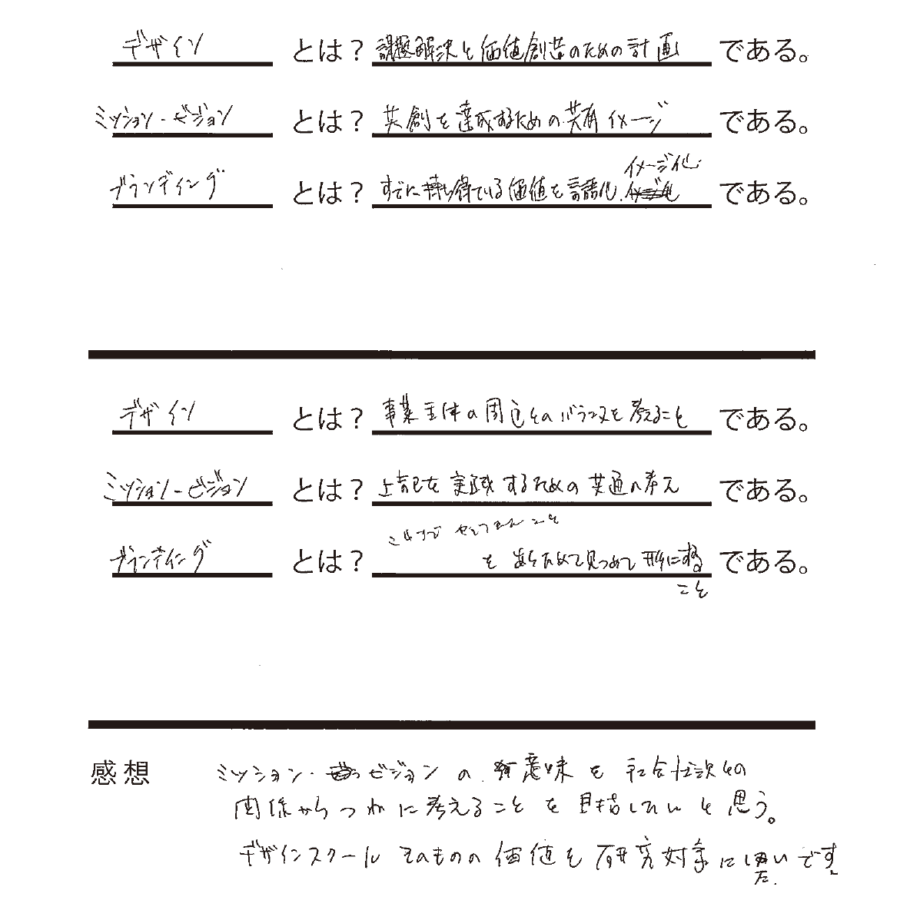 デザイン とは? 課題解決と価値創造のための計画 である。
ミッション・ビジョン とは? 共創を達成するための共有イメージ である。
イメージ化
ブランディング とは? すでに持ち得ている価値を言語化、 である。
デザイン とは? 事業主体の周辺とのバランスを考えること である。
ミッション・ビジョン とは? 上記を実践するための共通の考え である。
これまで やってきたことを
ブランディング とは? をあらためて見つめて形にする である。
こと
感想 ミッション・ビジョンの意味を社会状況との
関係からつねに考えることを目指したいと思う。
デザインスクールそのものの価値を研究対象にしたいです。